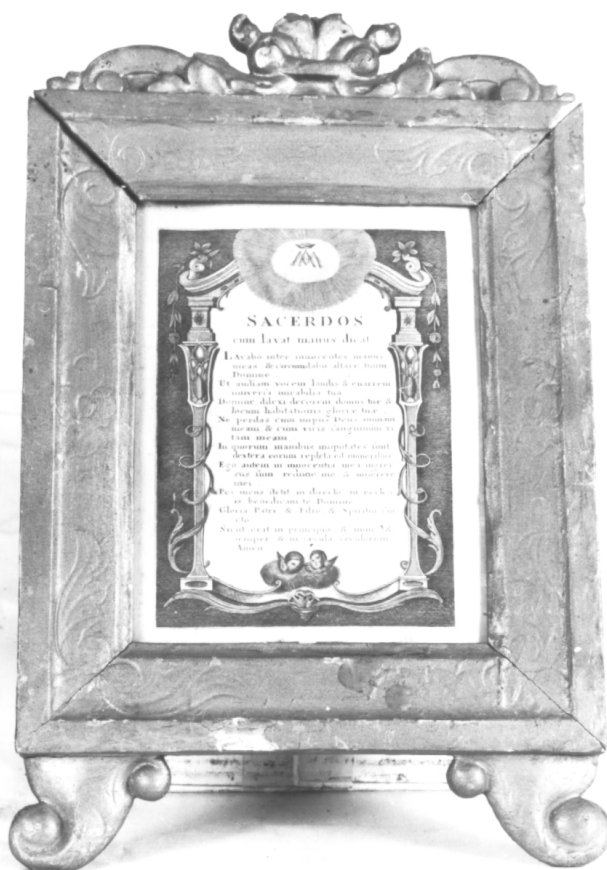 SACERDOS
cum lavat manus dicat
LAvabo inter innocentes manus
meas & circumdabo altare tuum
Domine
Ut audiam vocem laudis & enarrem
universa mirabilia tua
Domine dilexi decorem domus tuæ &
locum habitationis gloriæ tuæ
Ne perdas cum impiis Deus animam
meam & cum viris sanguinum vi
tam meam
In quorum manibus iniquitates sunt
dextera eorum repleta est muneribus
Ego autem in innocentia mea ingres
sus sum redime me & miserere
mei
Pes meus stetit in directo in eccles
is benedicam te Domine
Gloria Patri & Filio & Spiritui San
cto
Sicut erat in principio & nunc &
semper & in secula seculorum
Amen